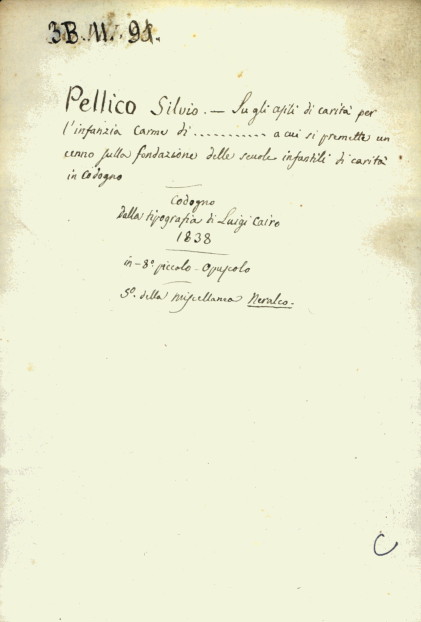 3B.M.91.
Pellico Silvio. — Su gli asili di carità per
l'infanzia Carme di ........... a cui si premette un
cenno sulla fondazione delle scuole infantili di carità
in Codogno
Codogno
Dalla tipografia di Luigi Cairo
1838
in-8º. piccolo - Opuscolo
5º. della Miscellanea Neralco.
C